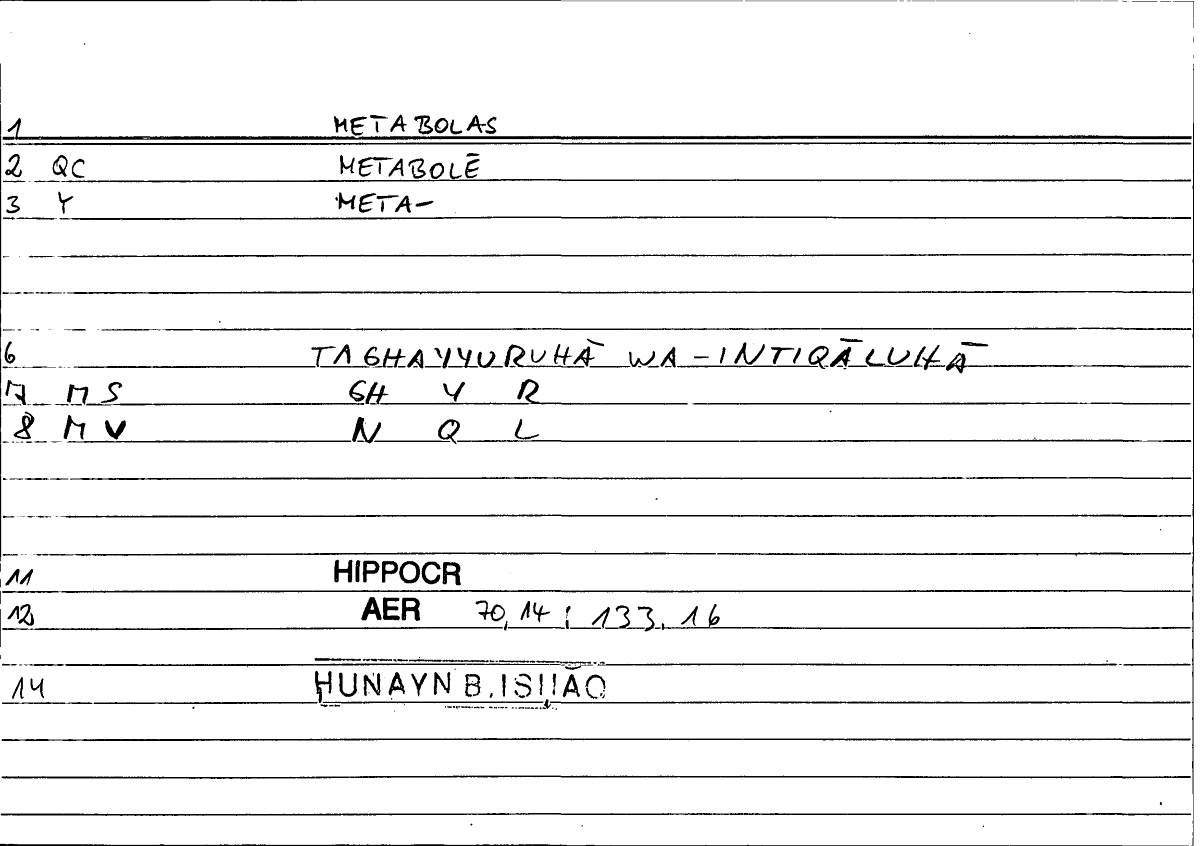 1 METABOLAS
2 QC METABOLĒ
3 Y META-
6 TAGHAYYURUHĀ WA-INTIQĀLUHĀ
7 M S GH Y R
8 M V N Q L
11 HIPPOCR
12 AER 70,14 ; 133.16
14 ḤUNAYN B. ISḤĀQ